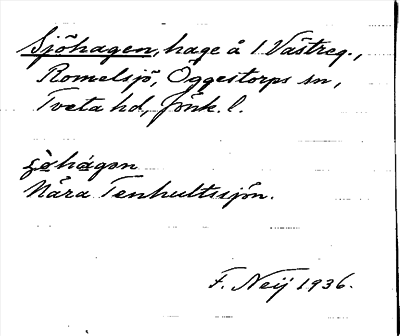 Sjöhagen, hage å 1 Västreg.,
Romelsjö, Öggestorps sn,
Tveta hd, Jönk. l.
Nära Tenhultssjön.
F. Neij 1936.